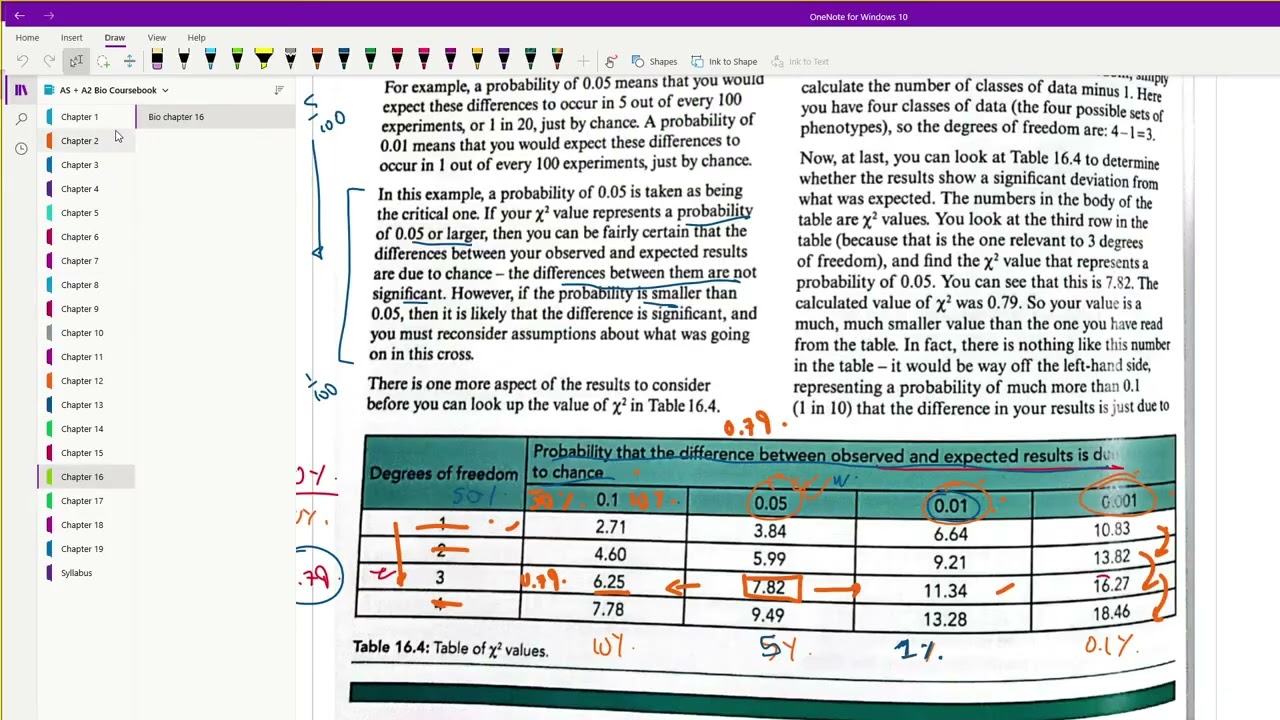 OneNote for Windows 10
Home Insert Draw View Help
Shapes Ink to Shape Ink to Text
AS + A2 Bio Coursebook
Chapter 1
Chapter 2
Chapter 3
Chapter 4
Chapter 5
Chapter 6
Chapter 7
Chapter 8
Chapter 9
Chapter 10
Chapter 11
Chapter 12
Chapter 13
Chapter 14
Chapter 15
Chapter 16
Chapter 17
Chapter 18
Chapter 19
Syllabus
Bio chapter 16
For example, a probability of 0.05 means that you would
expect these differences to occur in 5 out of every 100
experiments, or 1 in 20, just by chance. A probability of
0.01 means that you would expect these differences to
occur in 1 out of every 100 experiments, just by chance.
In this example, a probability of 0.05 is taken as being
the critical one. If your χ² value represents a probability
of 0.05 or larger, then you can be fairly certain that the
differences between your observed and expected results
are due to chance – the differences between them are not
significant. However, if the probability is smaller than
0.05, then it is likely that the difference is significant, and
you must reconsider assumptions about what was going
on in this cross.
There is one more aspect of the results to consider
before you can look up the value of χ² in Table 16.4.
5/100
1/100
simply
calculate the number of classes of data minus 1. Here
you have four classes of data (the four possible sets of
phenotypes), so the degrees of freedom are: 4–1=3.
Now, at last, you can look at Table 16.4 to determine
whether the results show a significant deviation from
what was expected. The numbers in the body of the
table are χ² values. You look at the third row in the
table (because that is the one relevant to 3 degrees
of freedom), and find the χ² value that represents a
probability of 0.05. You can see that this is 7.82. The
calculated value of χ² was 0.79. So your value is a
much, much smaller value than the one you have read
from the table. In fact, there is nothing like this number
in the table – it would be way off the left-hand side,
representing a probability of much more than 0.1
(1 in 10) that the difference in your results is just due to
0.79
Degrees of freedom
Probability that the difference between observed and expected results is
to chance
50% 50% 0.1 10% 0.05 0.01 0.001
1 2.71 3.84 6.64 10.83
2 4.60 5.99 9.21 13.82
3 0.79 6.25 7.82 11.34 16.27
4 7.78 9.49 13.28 18.46
.79
Table 16.4: Table of χ² values.
10% 5% 1% 0.1%